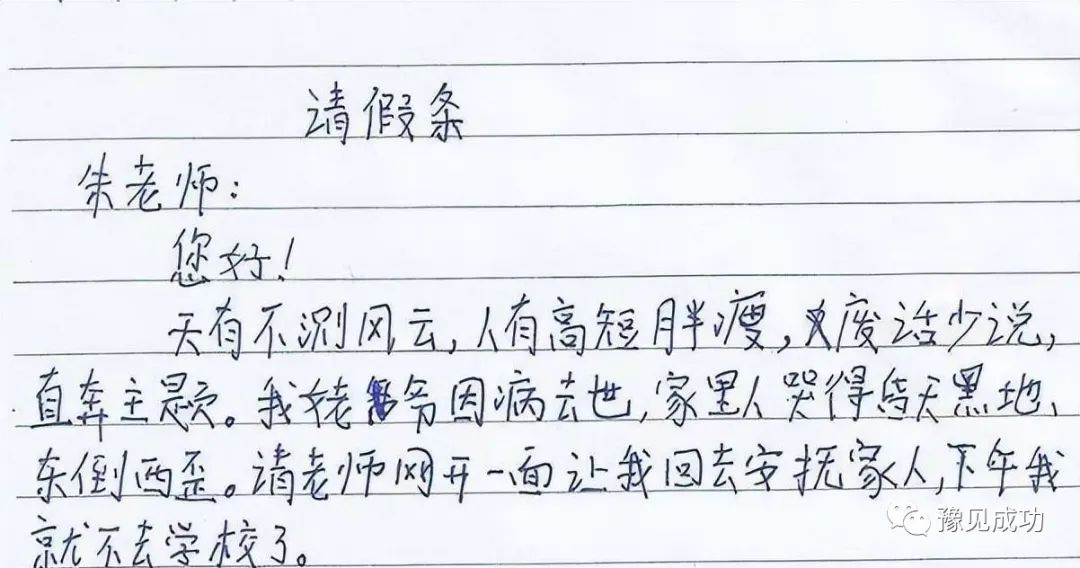 请假条
朱老师:
您好!
天有不测风云,人有高短胖瘦,废话少说,
直奔主题。我姥爷因病去世,家里人哭得昏天黑地、
东倒西歪。请老师网开一面让我回去安抚家人,下午我
就不去学校了。
豫见成功